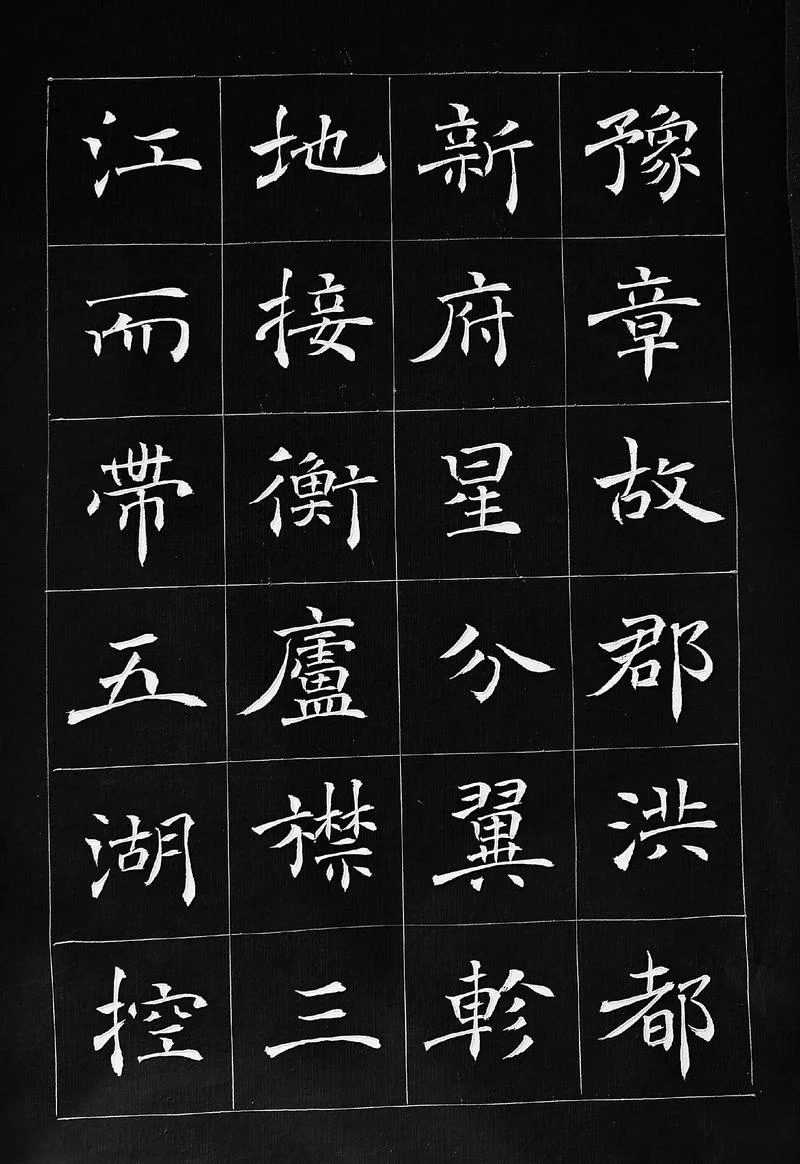 豫章故郡洪都
新府星分翼軫
地接衡廬襟三
江而帶五湖控